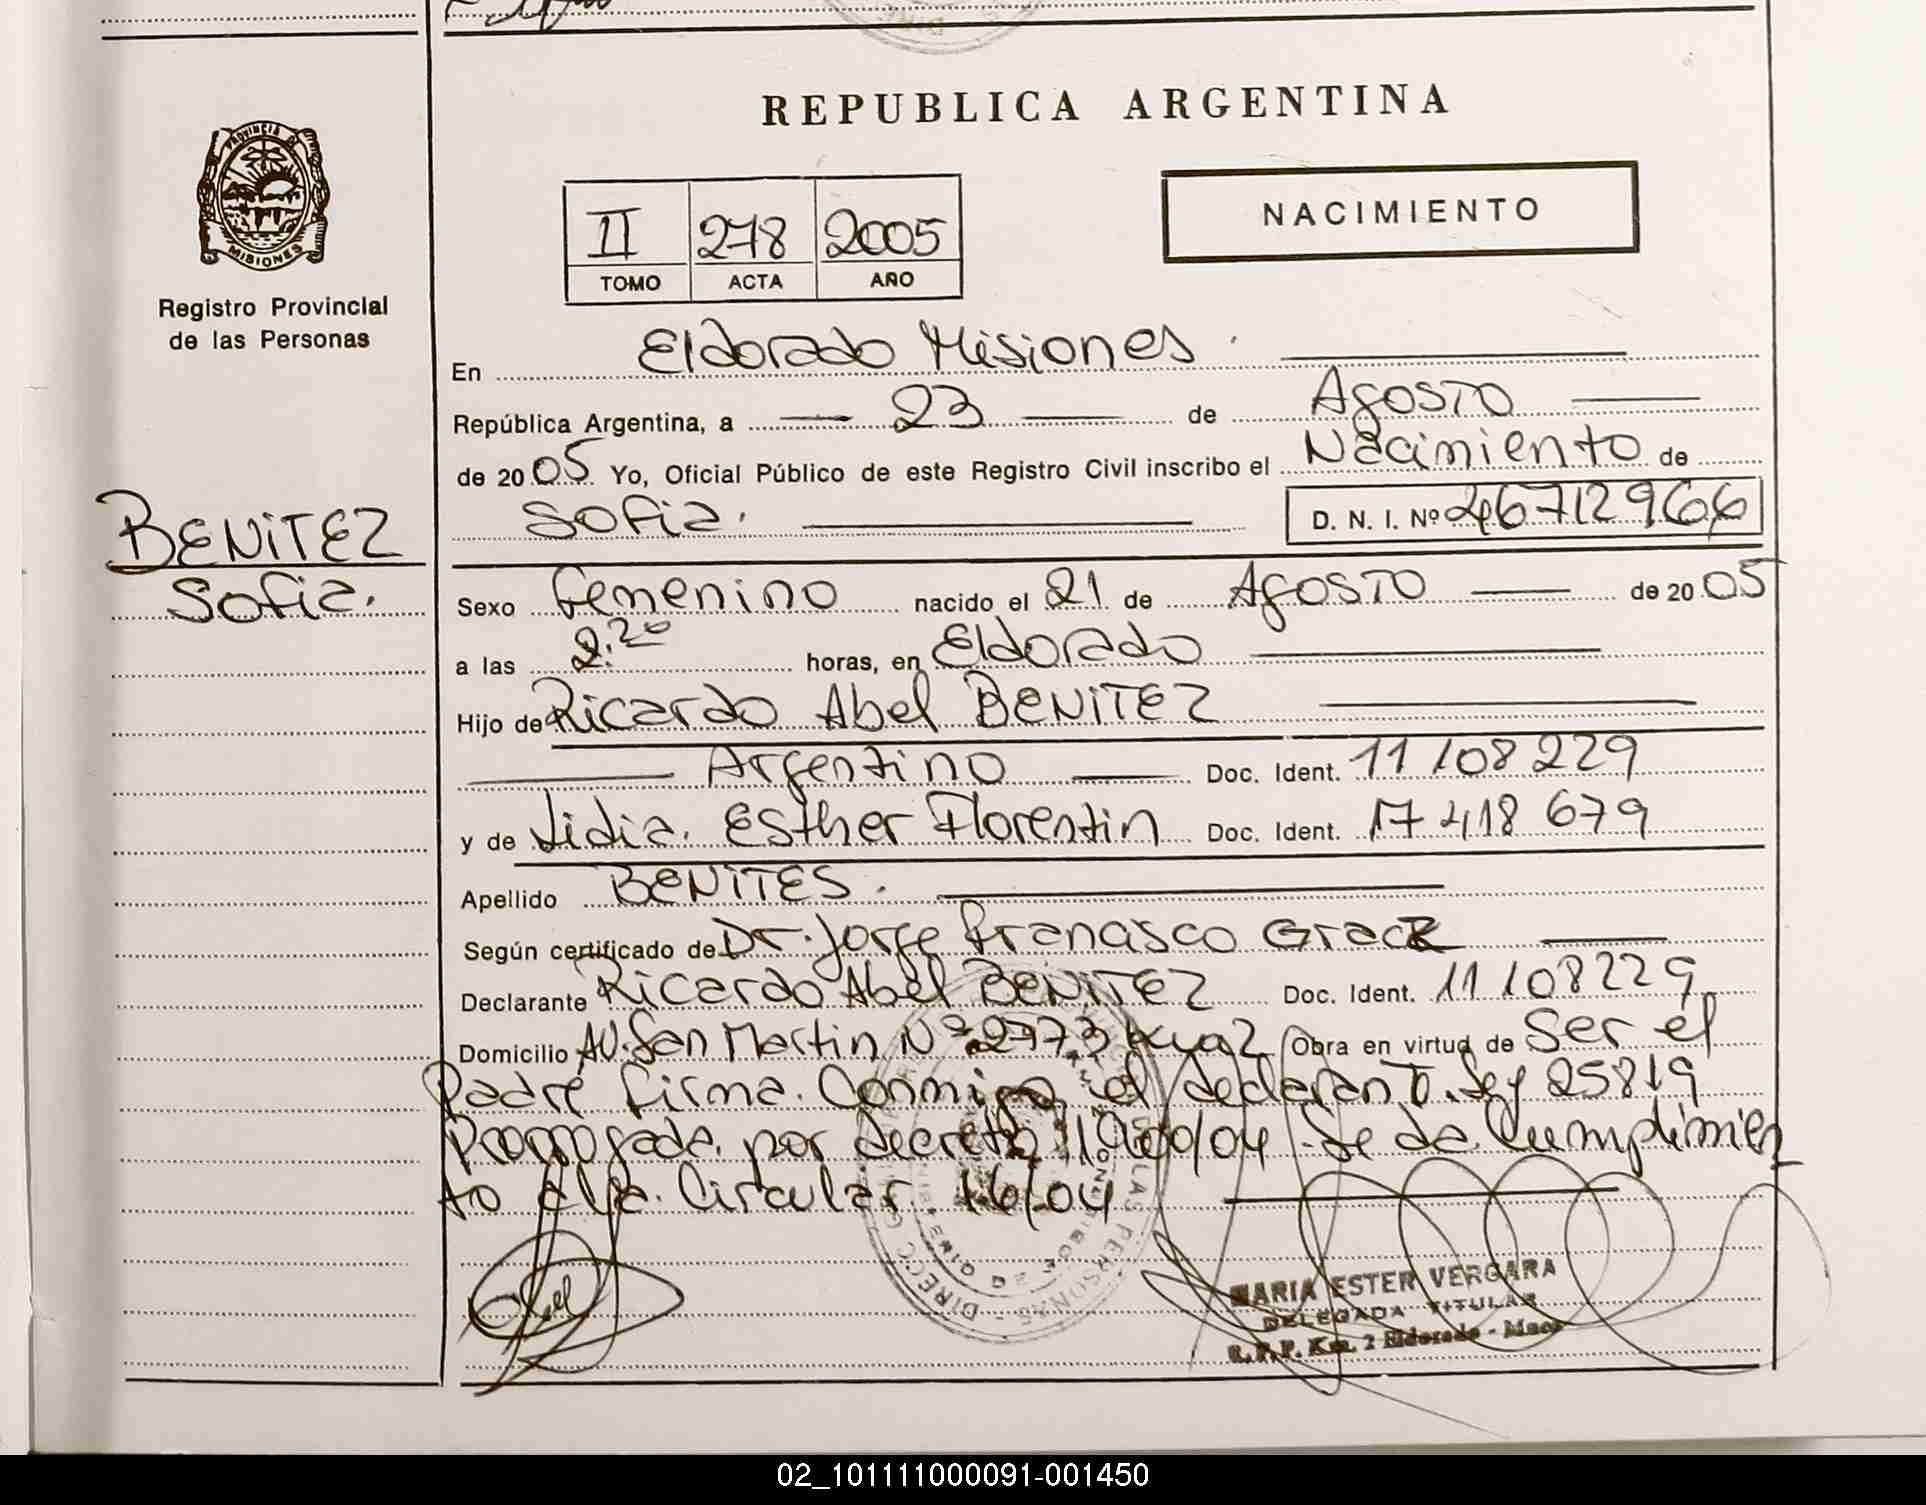 REPUBLICA ARGENTINA
PROVINCIA DE
MISIONES
Registro Provincial
de las Personas
II 278 2005
TOMO ACTA AÑO
NACIMIENTO
En Eldorado Misiones.
República Argentina, a 23 de Agosto
de 2005 Yo, Oficial Público de este Registro Civil inscribo el Nacimiento de
Sofia. D. N. I. Nº 46712966
BENITEZ
Sofia.
Sexo Femenino nacido el 21 de Agosto de 2005
a las 2:20 horas, en Eldorado
Hijo de Ricardo Abel BENITEZ
Argentino Doc. Ident. 11108229
y de Lidia. Esther Florentin Doc. Ident. 17418679
Apellido BENITES.
Según certificado de Dr. Jorge Francisco
Declarante Ricardo Abel BENITEZ Doc. Ident. 11108229
Domicilio AV. San Martin Nº 2773 Obra en virtud de Ser el
Padre firma. Conmigo el declarante. Ley 25819
por decreto /04. Se da. Cumplimien
to a la. Circular 16/04
MARIA ESTER VERGARA
DELEGADA TITULAR
R.P.P. Km. 2 Eldorado - Mnes
02_101111000091-001450